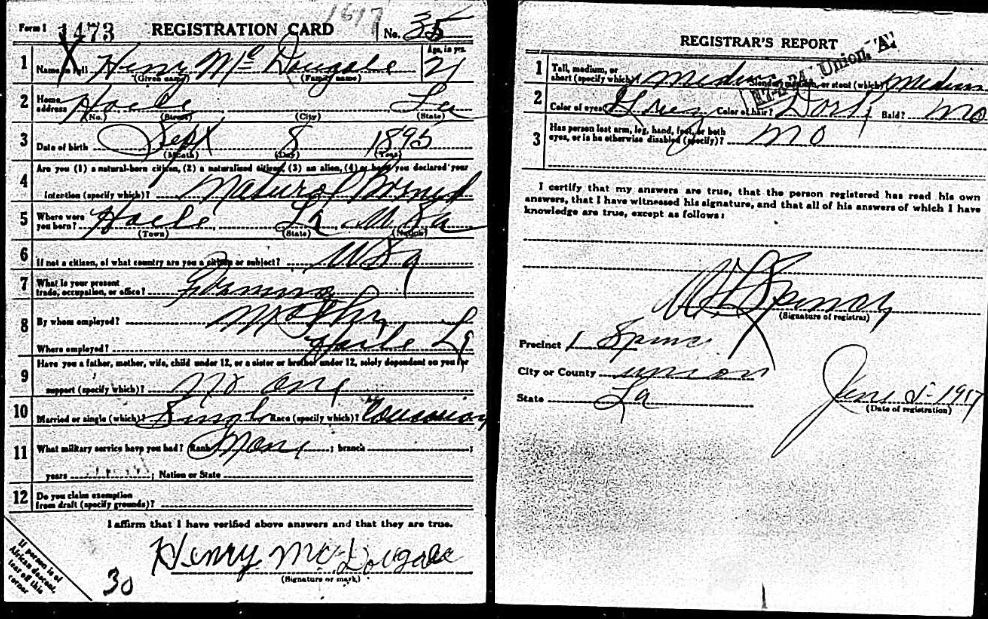 1617
Form 1 1473 REGISTRATION CARD No. 35
1 Name in full Henry Mc Dougale Age, in yrs. 21
(Given name) (Family name)
2 Home address Haile La
(No.) (Street) (City) (State)
3 Date of birth Sept 8 1895
(Month) (Day) (Year)
Are you (1) a natural-born citizen, (2) a naturalized citizen, (3) an alien, (4) or have you declared your
4 intention (specify which)? Natural
5 Where were you born? Haile La
(Town) (State) (Nation)
6 If not a citizen, of what country are you a citizen or subject? USA
7 What is your present trade, occupation, or office? Farming
8 By whom employed? Mother
Where employed? Haile La
Have you a father, mother, wife, child under 12, or a sister or brother under 12, solely dependent on you for
9 support (specify which)? No one
10 Married or single (which)? Single Race (specify which)?
11 What military service have you had? Rank None ; branch ;
years ; Nation or State
12 Do you claim exemption
from draft (specify grounds)?
I affirm that I have verified above answers and that they are true.
Henry McDougale
(Signature or mark)
If person is of
African descent,
tear off this
corner
30
REGISTRAR'S REPORT
Union "A"
1 Tall, medium, or short (specify which)? Medium Slender, medium, or stout (which)? Medium
2 Color of eyes? Grey Color of hair? Dark Bald? No
3 Has person lost arm, leg, hand, foot, or both
eyes, or is he otherwise disabled (specify)? No
I certify that my answers are true, that the person registered has read his own
answers, that I have witnessed his signature, and that all of his answers of which I have
knowledge are true, except as follows:
(Signature of registrar)
Precinct 1
City or County Union
State La
June 5-1917
(Date of registration)